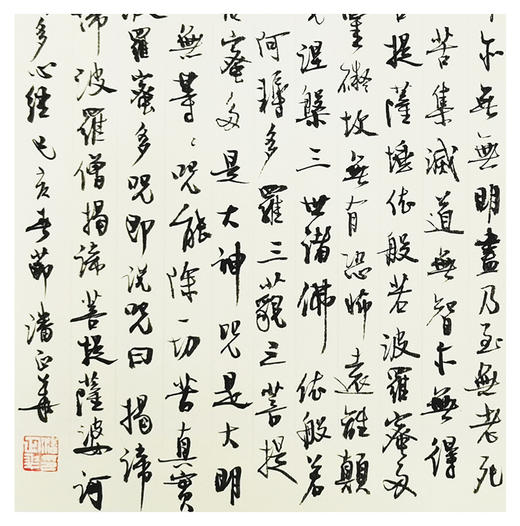 亦无無明盡乃至無老死
苦集滅道無智亦無得
菩提薩埵依般若波羅蜜多
罣礙故無有恐怖遠離顛
竟涅槃三世諸佛依般若
阿耨多羅三藐三菩提
蜜多是大神咒是大明
無等〻咒能除一切苦真實
波羅蜜多咒即説咒曰揭諦
諦波羅僧揭諦菩提薩婆訶
多心經己亥春節潘正華